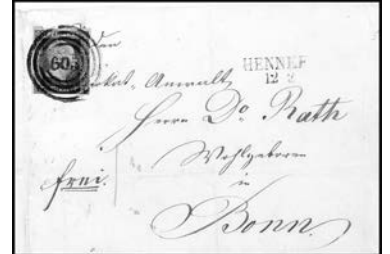 603
HENNEF
12 2
den
Advokat-Anwalt
Herrn Dr Rath
Wohlgeboren
in
frei.
Bonn.